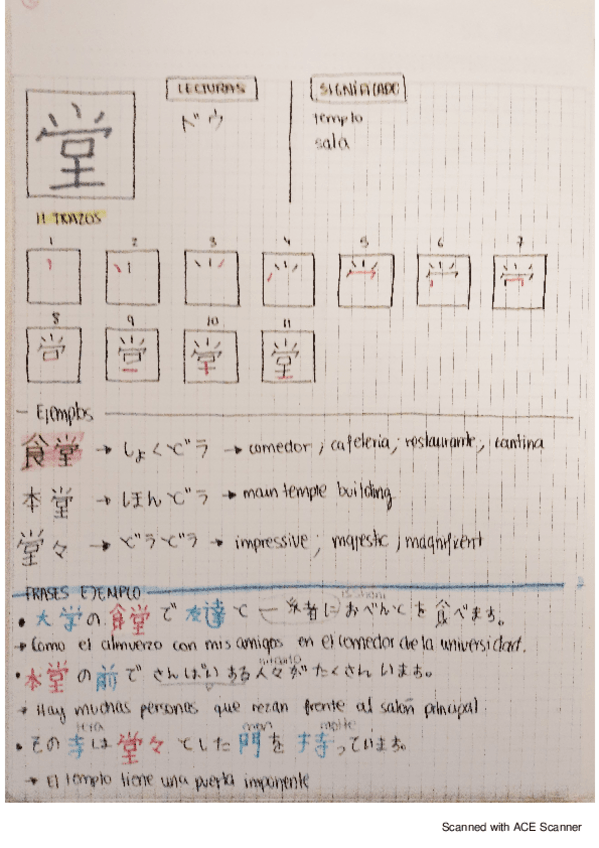 LECTURAS
SIGNIFICADO
堂
ドウ
templo
sala
11 TRAZOS
1 2 3 4 5 6 7
8 9 10 11
Ejemplos
食堂 → しょくどう → comedor ; cafeteria ; restaurante ; cantina
本堂 → ほんどう → main temple building
堂々 → どうどう → impressive ; majestic ; magnificent
FRASES EJEMPLO
• 大学の食堂で友達と一緒におべんとを食べます。
→ Como el almuerzo con mis amigos en el comedor de la universidad.
• 本堂の前でさんぱいある人々がたくさんいます。
→ Hay muchas personas que rezan frente al salón principal.
• その寺は堂々とした門を持っています。
→ El templo tiene una puerta imponente
Scanned with ACE Scanner